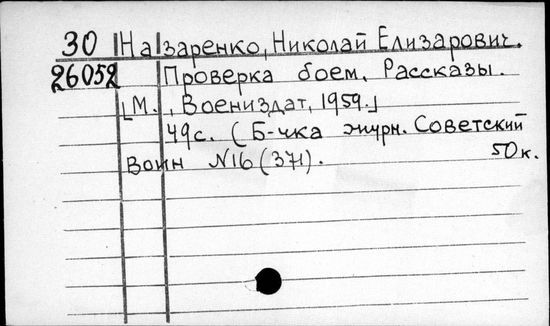 30 Назаренко, Николай Елизарович.
26052 Проверка боем. Рассказы.
[М., Воениздат, 1959.]
49с. (Б-чка журн. Советский
Воин N16 (371). 50к.